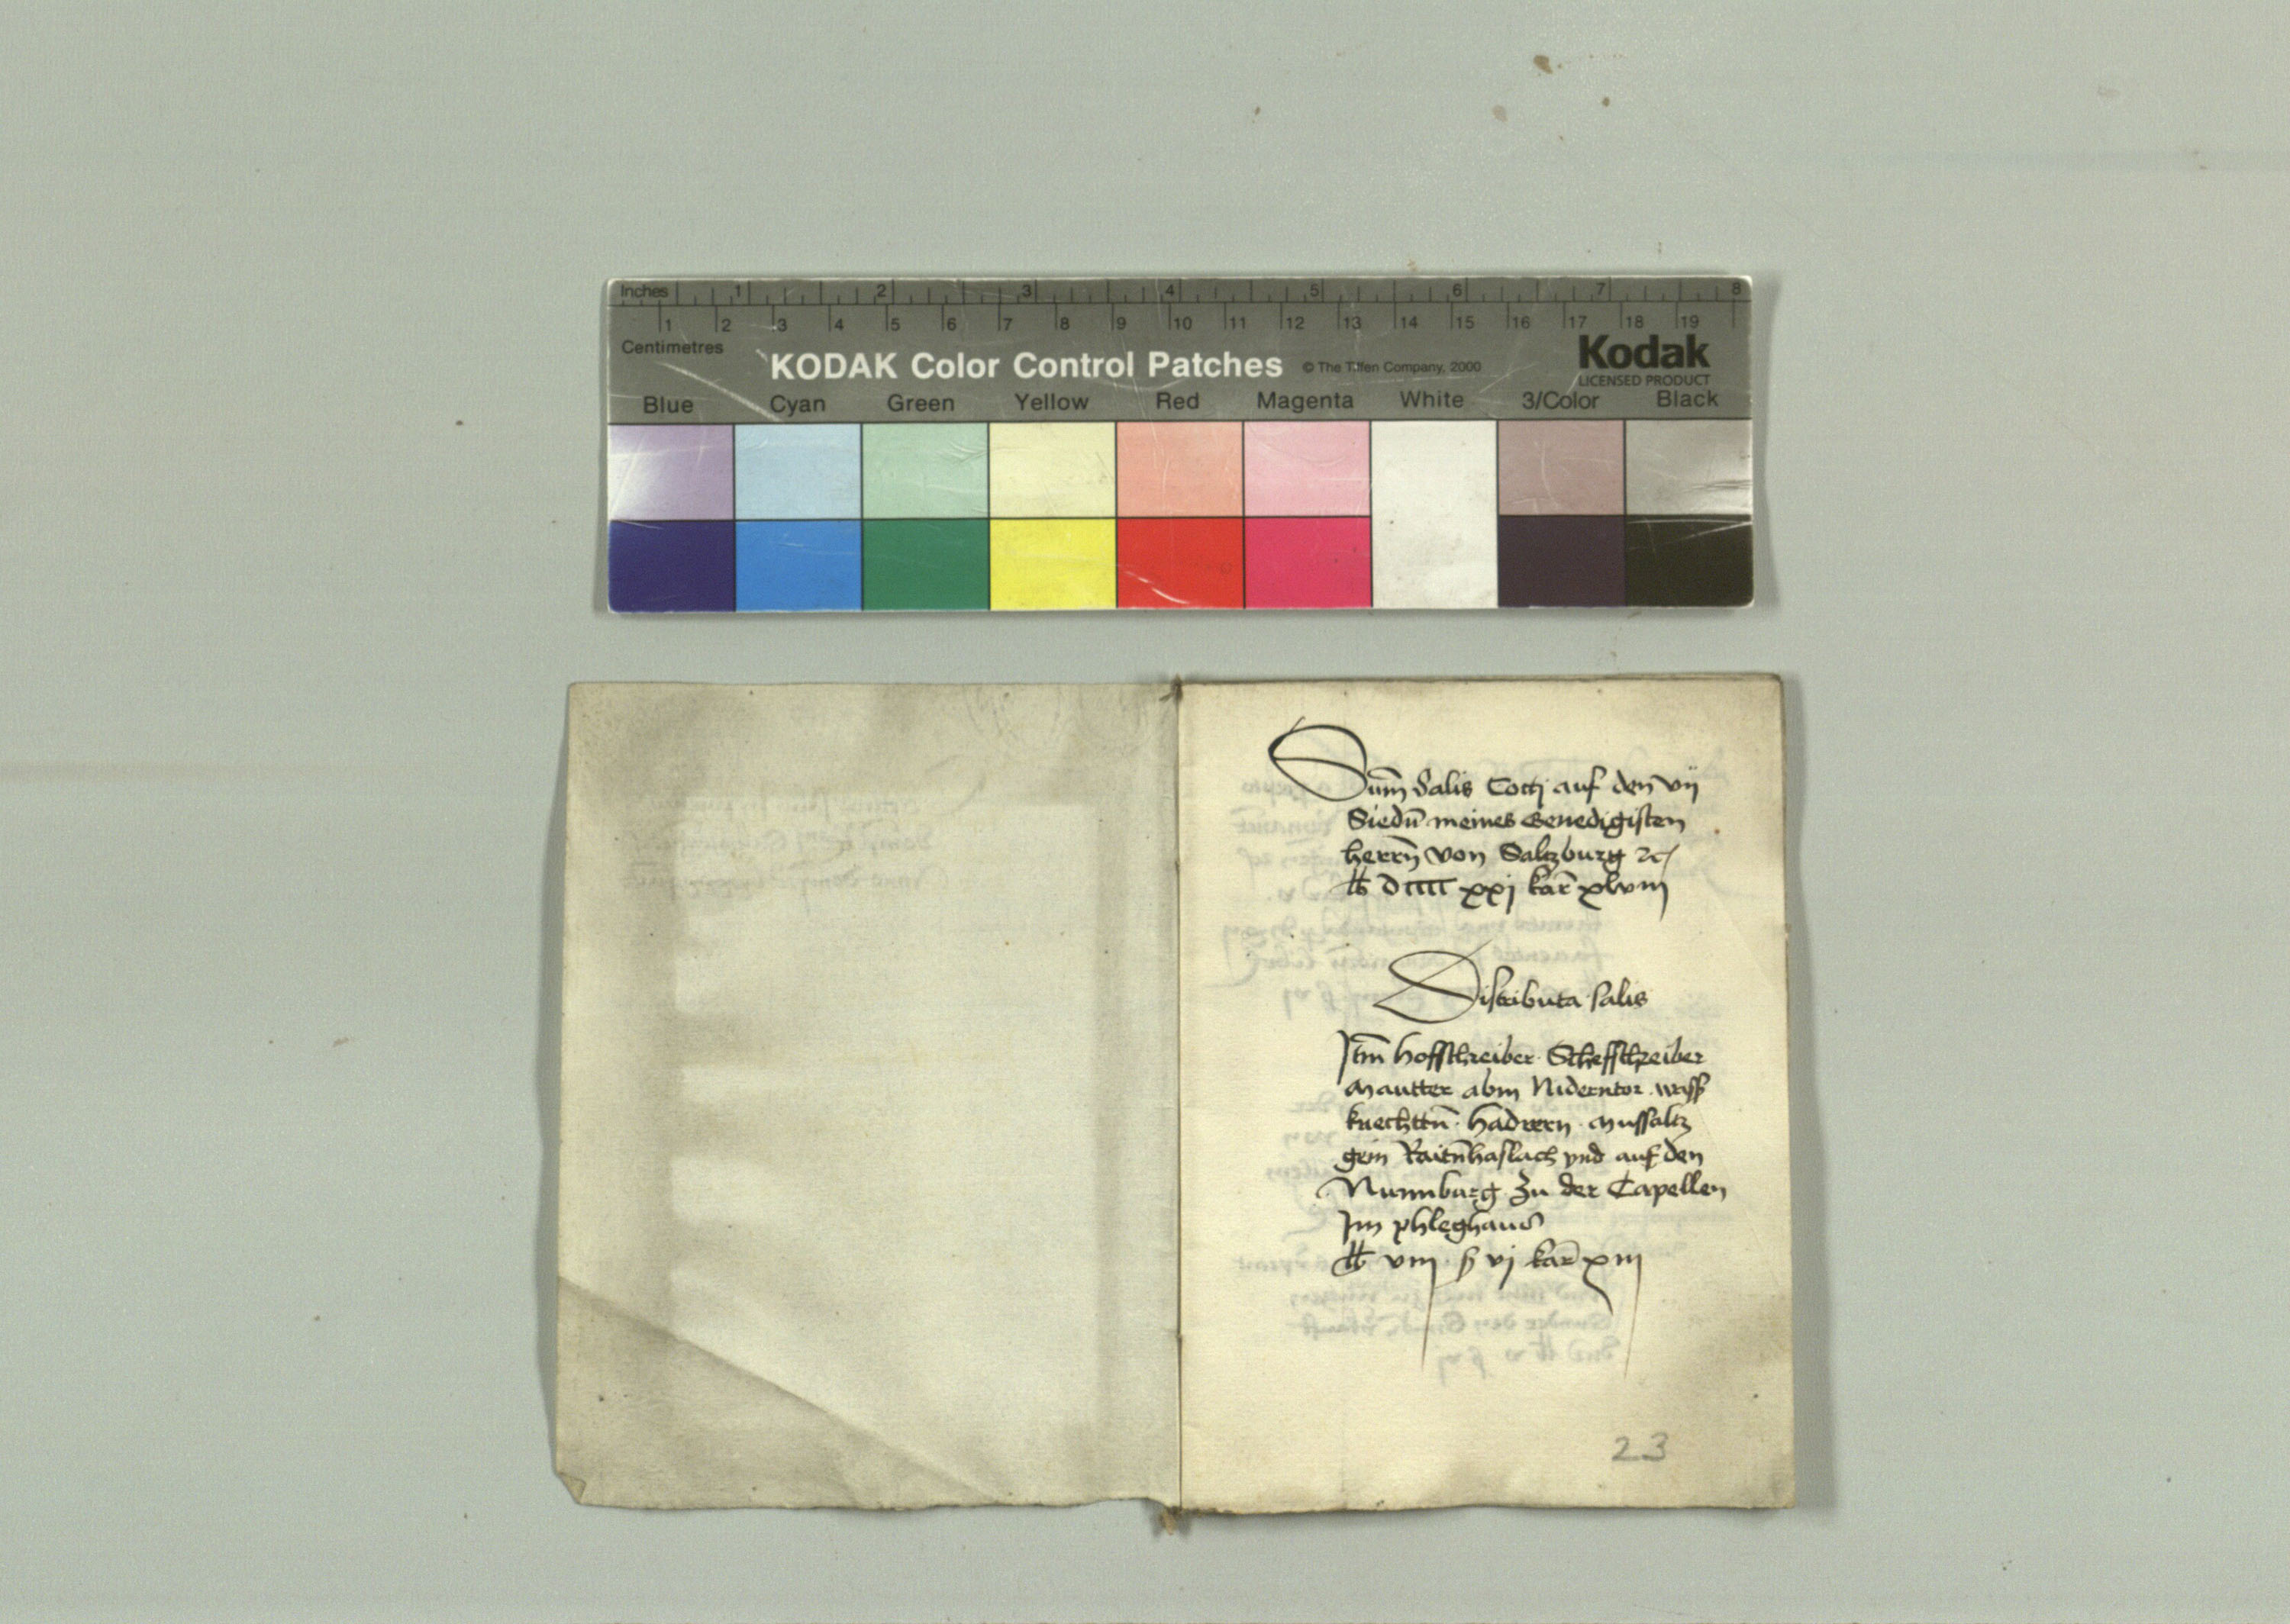 Inches 1 2 3 4 5 6 7 8
1 2 3 4 5 6 7 8 9 10 11 12 13 14 15 16 17 18 19
Centimetres
KODAK Color Control Patches © The Tiffen Company, 2000 Kodak
LICENSED PRODUCT
Blue Cyan Green Yellow Red Magenta White 3/Color Black
Sum̄ Salis Cocti auf den vij
Siedn̄ meines Genedigisten
herrn̄ von Saltzburg ꝛc
℔ Dcccc xxj kar̄ xlviij
Distributa salis
Itm̄ hofschreiber Scheffschreiber
Mautter abm Niderntor
knechttn̄ Mussaltz
gein Raitn̄haslach vnd auf den
Nunnburg zu der Capellen
Im phleghaus
℔ viij ß vj kar̄ xiij
23